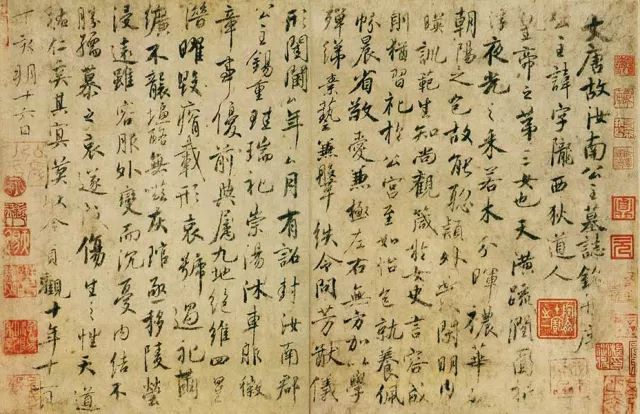 大唐故汝南公主墓誌銘并序
公主諱字隴西狄道人
皇帝之第三女也天潢疏潤圓折
浮夜光之采若木分暉穠華
朝陽之色故能聰穎外發閑明內
暎訓範生知尚觀箴於女史言容成
則猶習礼於公宮至如怡色就養佩
帉晨省敬愛兼極左右無方加以學
殫綈素藝兼鞶紩令問芳猷儀
形閨閫厶年厶月有詔封汝南郡
公主錫重珪瑞礼崇湯沐車服徽
章事優前典屬九地絕維四星
潛曜毀瘠載形哀號過礼繭
纊不襲塩酪無嗞灰琯亟移陵塋
浸遠雖容服外變而沉憂內結不
勝孺慕之哀遂以傷生之性天道
祐仁奚其冥漠以今貞觀十年十一月
丁亥朔十六日